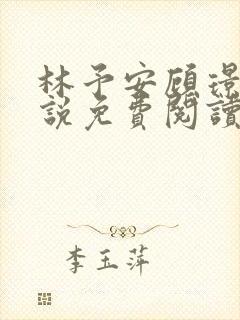 林予安顾璟
說免費閱讀
李玉萍